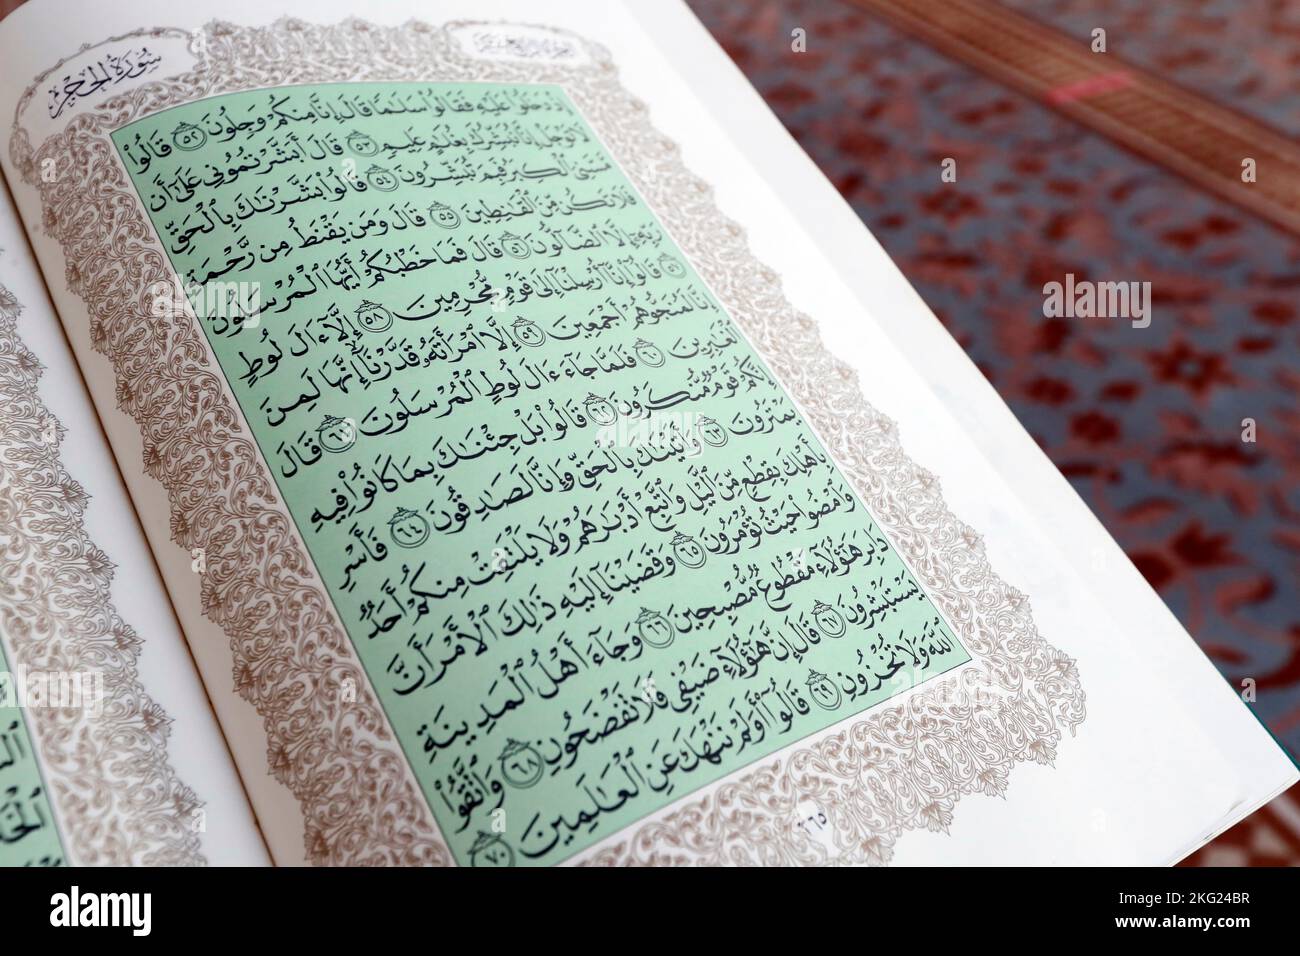 سُورَةُ الحِجْرِ
إِذْ دَخَلُوا۟ عَلَيْهِ فَقَالُوا۟ سَلَٰمًا قَالَ إِنَّا مِنكُمْ وَجِلُونَ ٥٢ قَالُوا۟
لَا تَوْجَلْ إِنَّا نُبَشِّرُكَ بِغُلَٰمٍ عَلِيمٍ ٥٣ قَالَ أَبَشَّرْتُمُونِى عَلَىٰٓ أَن
مَّسَّنِىَ ٱلْكِبَرُ فَبِمَ تُبَشِّرُونَ ٥٤ قَالُوا۟ بَشَّرْنَٰكَ بِٱلْحَقِّ
فَلَا تَكُن مِّنَ ٱلْقَٰنِطِينَ ٥٥ قَالَ وَمَن يَقْنَطُ مِن رَّحْمَةِ
رَبِّهِۦٓ إِلَّا ٱلضَّآلُّونَ ٥٦ قَالَ فَمَا خَطْبُكُمْ أَيُّهَا ٱلْمُرْسَلُونَ
٥٧ قَالُوٓا۟ إِنَّآ أُرْسِلْنَآ إِلَىٰ قَوْمٍ مُّجْرِمِينَ ٥٨ إِلَّآ ءَالَ لُوطٍ
إِنَّا لَمُنَجُّوهُمْ أَجْمَعِينَ ٥٩ إِلَّا ٱمْرَأَتَهُۥ قَدَّرْنَآ إِنَّهَا لَمِنَ
ٱلْغَٰبِرِينَ ٦٠ فَلَمَّا جَآءَ ءَالَ لُوطٍ ٱلْمُرْسَلُونَ ٦١ قَالَ
إِنَّكُمْ قَوْمٌ مُّنكَرُونَ ٦٢ قَالُوا۟ بَلْ جِئْنَٰكَ بِمَا كَانُوا۟ فِيهِ
يَمْتَرُونَ ٦٣ وَأَتَيْنَٰكَ بِٱلْحَقِّ وَإِنَّا لَصَٰدِقُونَ ٦٤ فَأَسْرِ
بِأَهْلِكَ بِقِطْعٍ مِّنَ ٱلَّيْلِ وَٱتَّبِعْ أَدْبَٰرَهُمْ وَلَا يَلْتَفِتْ مِنكُمْ أَحَدٌ
وَٱمْضُوا۟ حَيْثُ تُؤْمَرُونَ ٦٥ وَقَضَيْنَآ إِلَيْهِ ذَٰلِكَ ٱلْأَمْرَ أَنَّ
دَابِرَ هَٰٓؤُلَآءِ مَقْطُوعٌ مُّصْبِحِينَ ٦٦ وَجَآءَ أَهْلُ ٱلْمَدِينَةِ
يَسْتَبْشِرُونَ ٦٧ قَالَ إِنَّ هَٰٓؤُلَآءِ ضَيْفِى فَلَا تَفْضَحُونِ ٦٨ وَٱتَّقُوا۟
ٱللَّهَ وَلَا تُخْزُونِ ٦٩ قَالُوٓا۟ أَوَلَمْ نَنْهَكَ عَنِ ٱلْعَٰلَمِينَ ٧٠
٢٦٥
alamy
Image ID: 2KG24BR
www.alamy.com